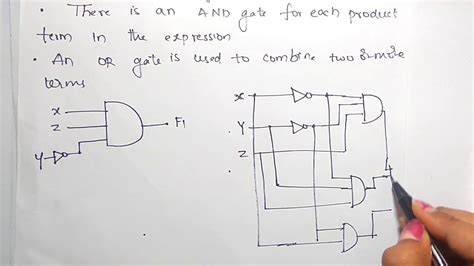 • There is an AND gate for each product
term in the expression
• An OR gate is used to combine two or more
terms
x
z
y
F1
x
y
z